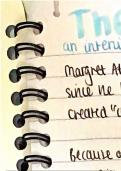 The
an interv
Margret At
since he
created "c
Because o